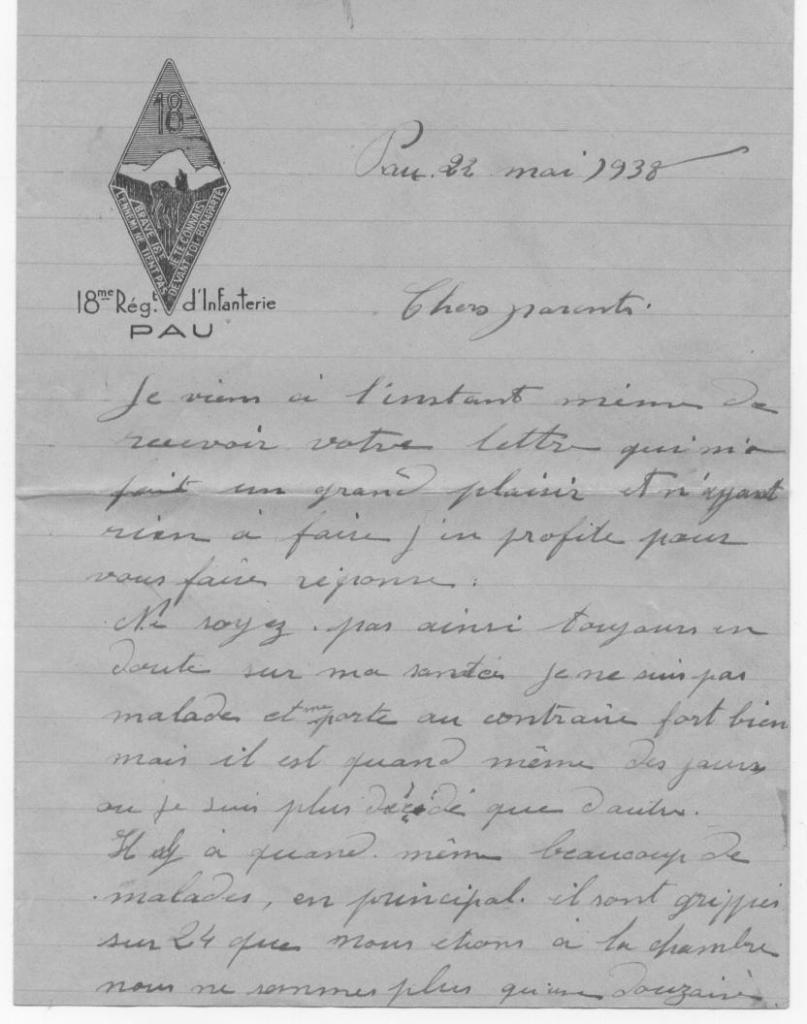 18
BRAVE 18E JE TE CONNAIS
L'ENNEMI NE TIENT PAS DEVANT TOI BONAPARTE
18me Régt d'Infanterie
PAU
Pau. 22 mai 1938
Chers parents.
Je viens à l'instant même de
recevoir votre lettre qui m'a
fait un grand plaisir et n'ayant
rien à faire j'en profite pour
vous faire réponse.
Ne soyez pas ainsi toujours en
doute sur ma santée je ne suis pas
malade et me porte au contraire fort bien
mais il est quand même des jours
ou je suis plus décidé que d'autre.
Il y à quand même beaucoup de
malades, en principal il sont grippés
sur 24 que nous étions à la chambre
nous ne sommes plus qu'une douzaine.